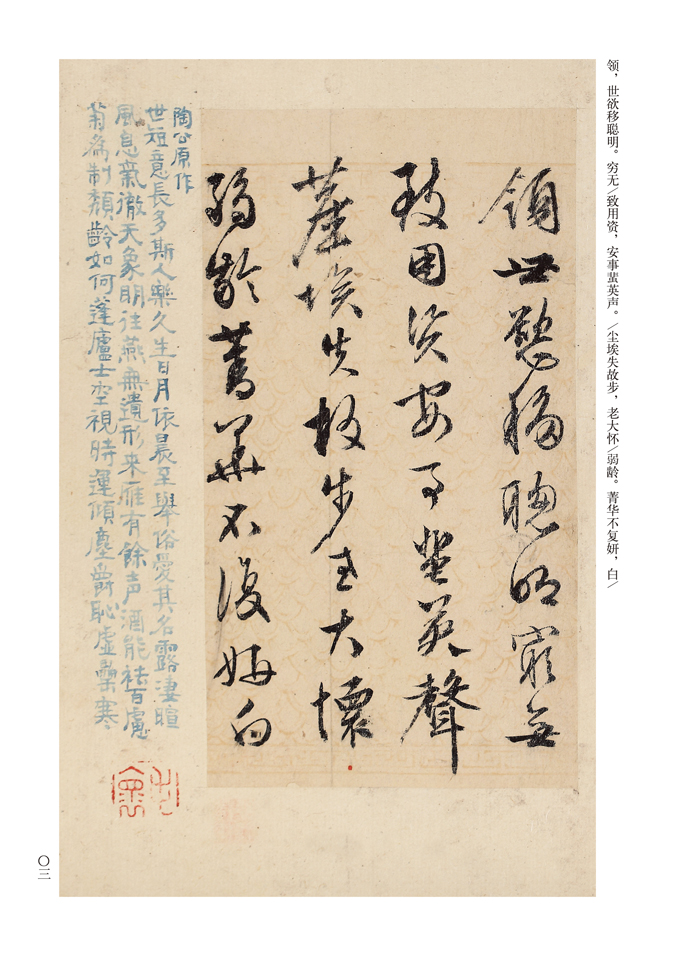 领，世欲移聪明。穷无／致用资，安事蜚英声。／尘埃失故步，老大怀／弱龄。菁华不复妍，白／
领世愁移聪明穷无
致用资安事蜚英聲
塵埃失故步老大懷
弱齡菁華不復妍白
陶公原作
世短意長多斯人樂久生日月依晨至舉俗愛其名露淒暄
風息氣澈天象明往燕無遺形来雁有餘声酒能祛百慮
菊為制頽齡如何蓬廬士空視時運傾塵爵恥虛罍寒
〇三